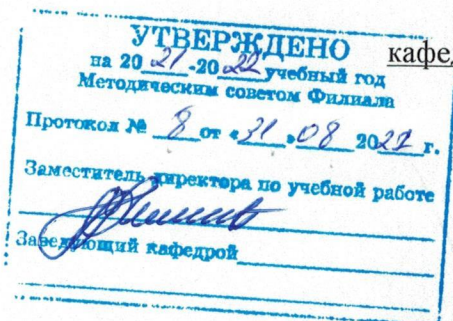 УТВЕРЖДЕНО
на 2021-2022 учебный год
Методическим советом Филиала
Протокол № 8 от «31» 08 2021 г.
Заместитель директора по учебной работе
Заведующий кафедрой
кафе